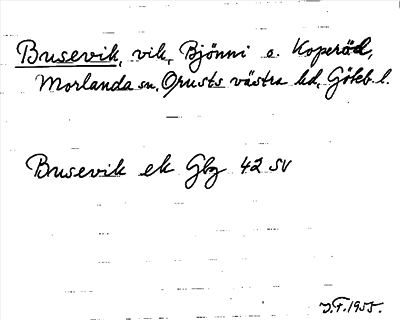 Busevik, vik, Bjönni o. Koperöd,
Morlanda sn, Orusts västra hd, Göteb. l.
Busevik ek Gbg 42 SV
J.F. 1955.